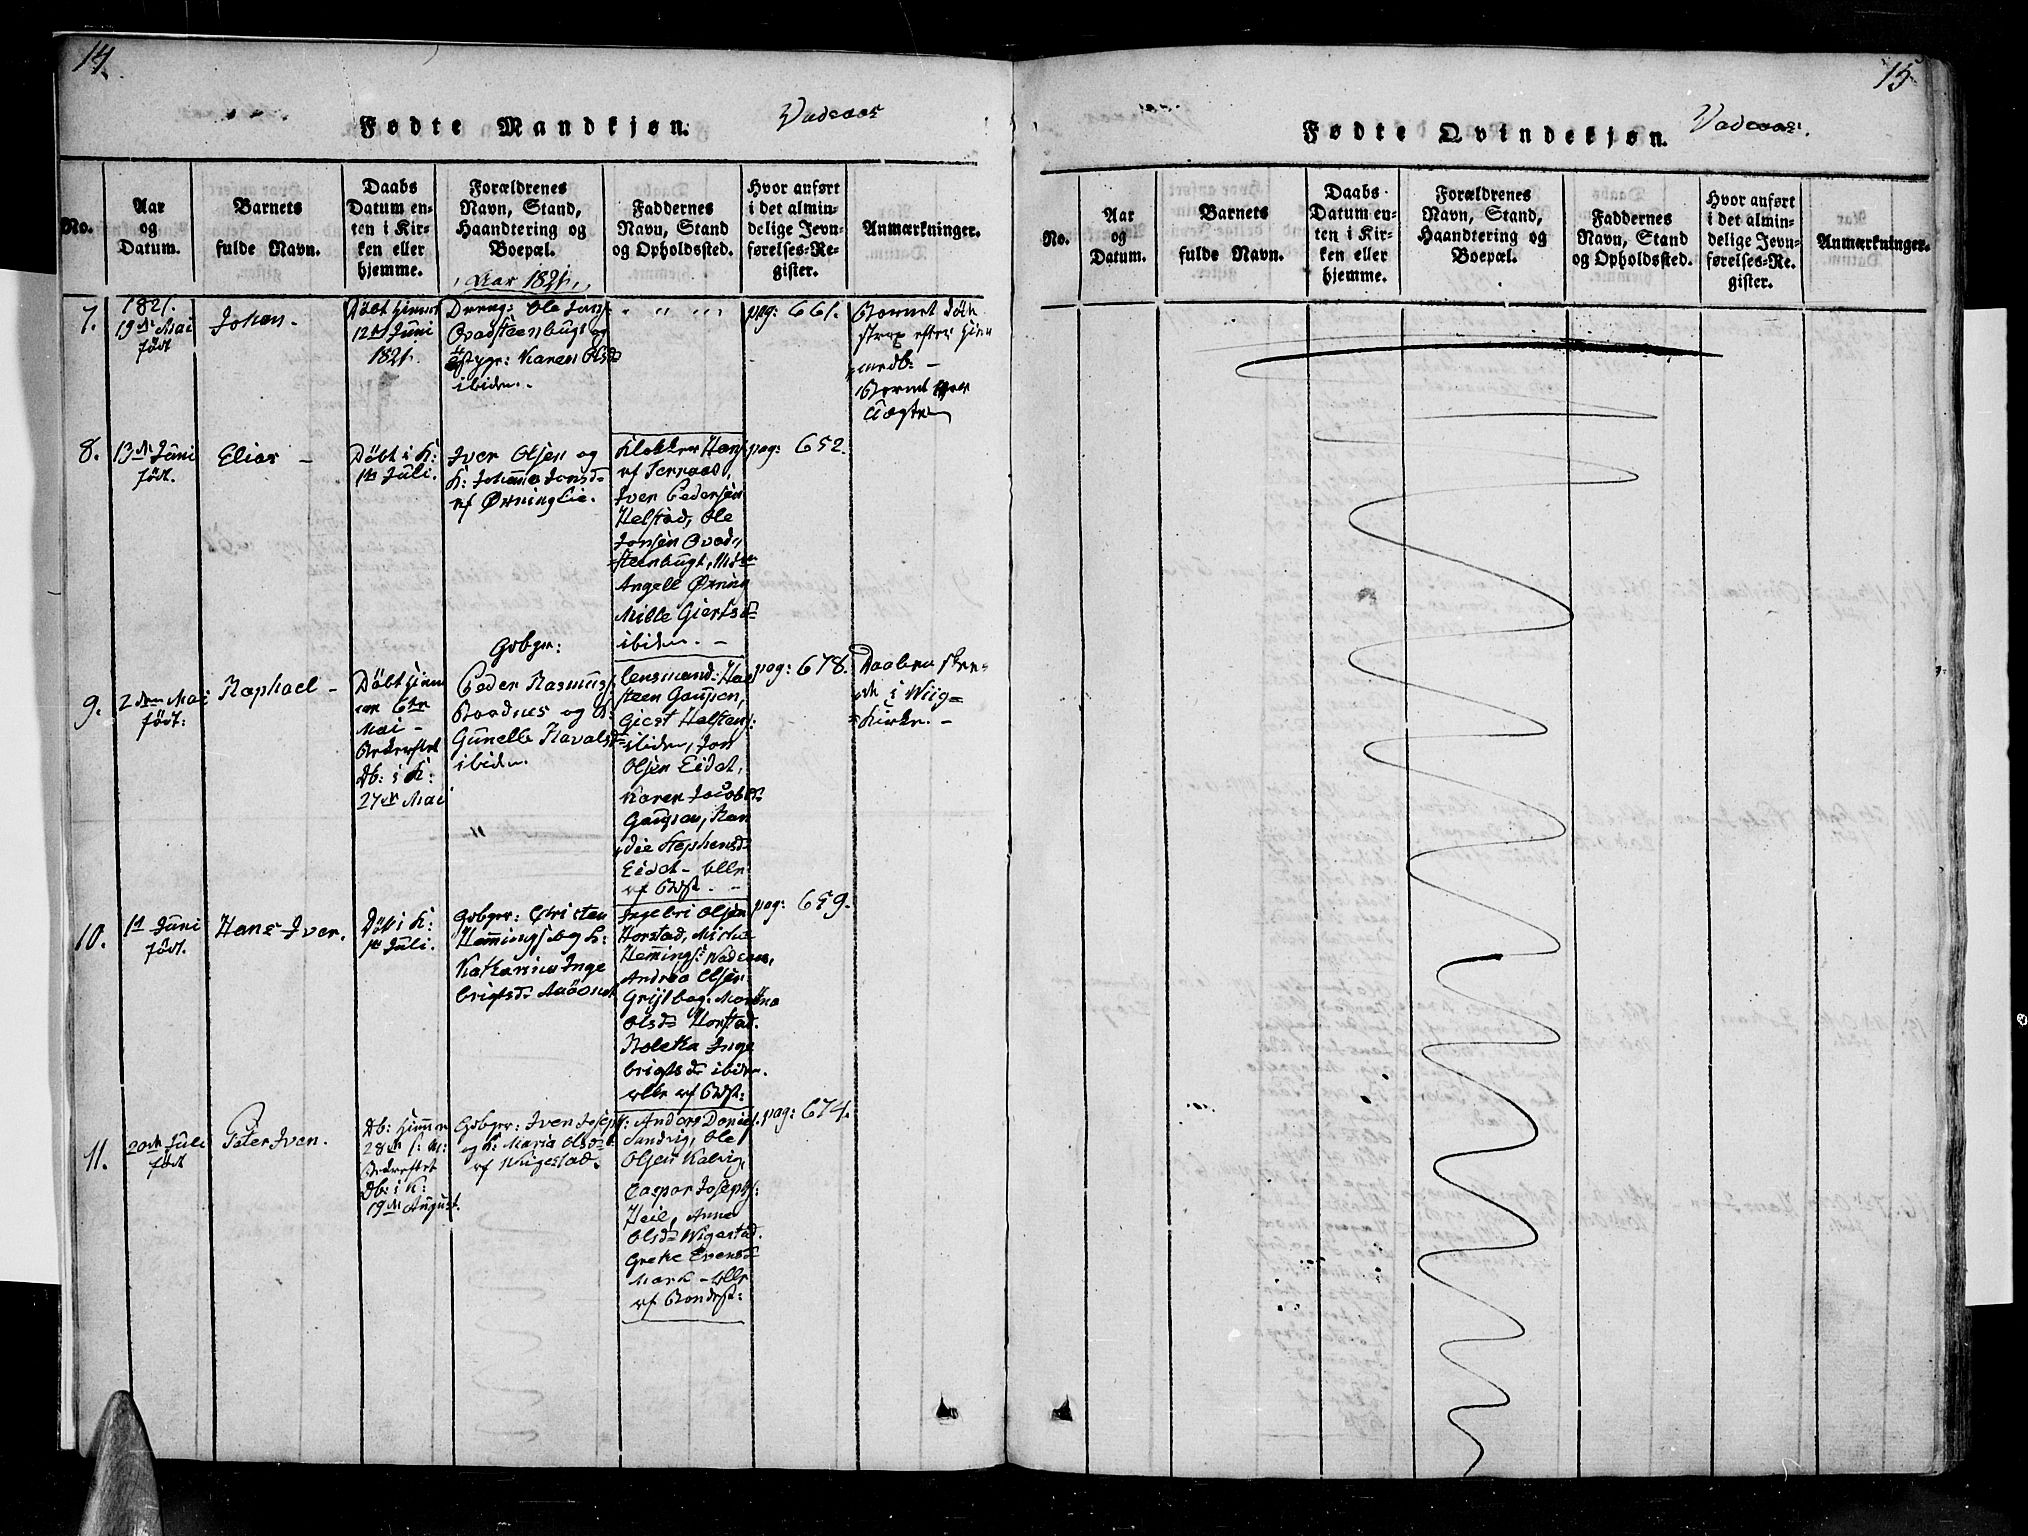 14.
Fødte Mandkjøn.
No.
Aar
og
Datum.
Barnets
fulde Navn.
Daabs
Datum en-
ten i Kir-
ken eller
hjemme.
Forældrenes
Navn, Stand,
Haandtering og
Boepæl.
Faddernes
Navn, Stand
og Opholdssted.
Hvor anført
i det almin-
delige Jevn-
førelses-Re-
gister.
Anmærkninger.
Aar 1821.
7.
1821.
19de Mai
født
Johan.
Døbt hjemme
12te Juni
1821.
Dreng: Ole Jons.
Qvadsteenbugt og
Karen Olsd
ibidem.
pag: 661.
Barnet døde
strax efter hjem
8.
13de Juni
født.
Elias -
Døbt i K:
1ste Juli.
Iver Olsen og
K: Johanna Jonsd
af Ørninglie.
Klokker Hans
af Ternaas,
Iver Pedersen
Helstad, Ole
Jonsen Qvad-
steenbugt,
Angell Ørning
Mille Giertsd
ibidem. -
pag: 652.
9.
2den Mai
født:
Raphael -
Døbt hjem
6te
Mai -
Bekræftet
Db: i K:
27de Mai
Gbgr:
Peder Rasmus:
og K:
Gunelle
ibidem.
Lensmand:
steen Gaupen,
Giert Halsteens:
ibidem, Jon
Olsen Eidet,
Karen Jacobsd.
Gaupen, Ran
die Stephensd
Eidet - alle
af Bdst. -
pag: 678.
Daaben skee-
de i Wiig-
Kirke. -
10.
1ste Juni
født.
Hans Iver.
Døb i K:
1ste Juli.
Gbgr: Christen
Hemmings. og K:
Katharina Inge
brigtsd
Ingebri Olsen
Horstad,
Hemings:
Andrea Olsen
Olsd Horstad.
Inge
brigtsd ibidem.
alle af Bdst:
pag: 659.
11.
20de Juli
født
Peter Iver.
Db: hjemme
28de s: M:
Bekræftet
Db: i K:
19de August.
Gbgr: Iver Joseph.
og K: Maria Olsd
af Wigestad.
Anders Daniel.
Sandvig, Ole
Olsen Kalvig,
Caspar Joseph:
Heil, Anne
Olsd Wigestad.
Grethe Evensd
Mark - alle
af Bondest:
pag: 674.
15
Fødte Qvindekjøn.
No.
Aar
og
Datum.
Barnets
fulde Navn.
Daabs
Datum en-
ten i Kir-
ken eller
hjemme.
Forældrenes
Navn, Stand,
Haandtering og
Boepæl.
Faddernes
Navn, Stand
og Opholdssted.
Hvor anført
i det almin-
delige Jevn-
førelses-Re-
gister.
Anmærkninger.